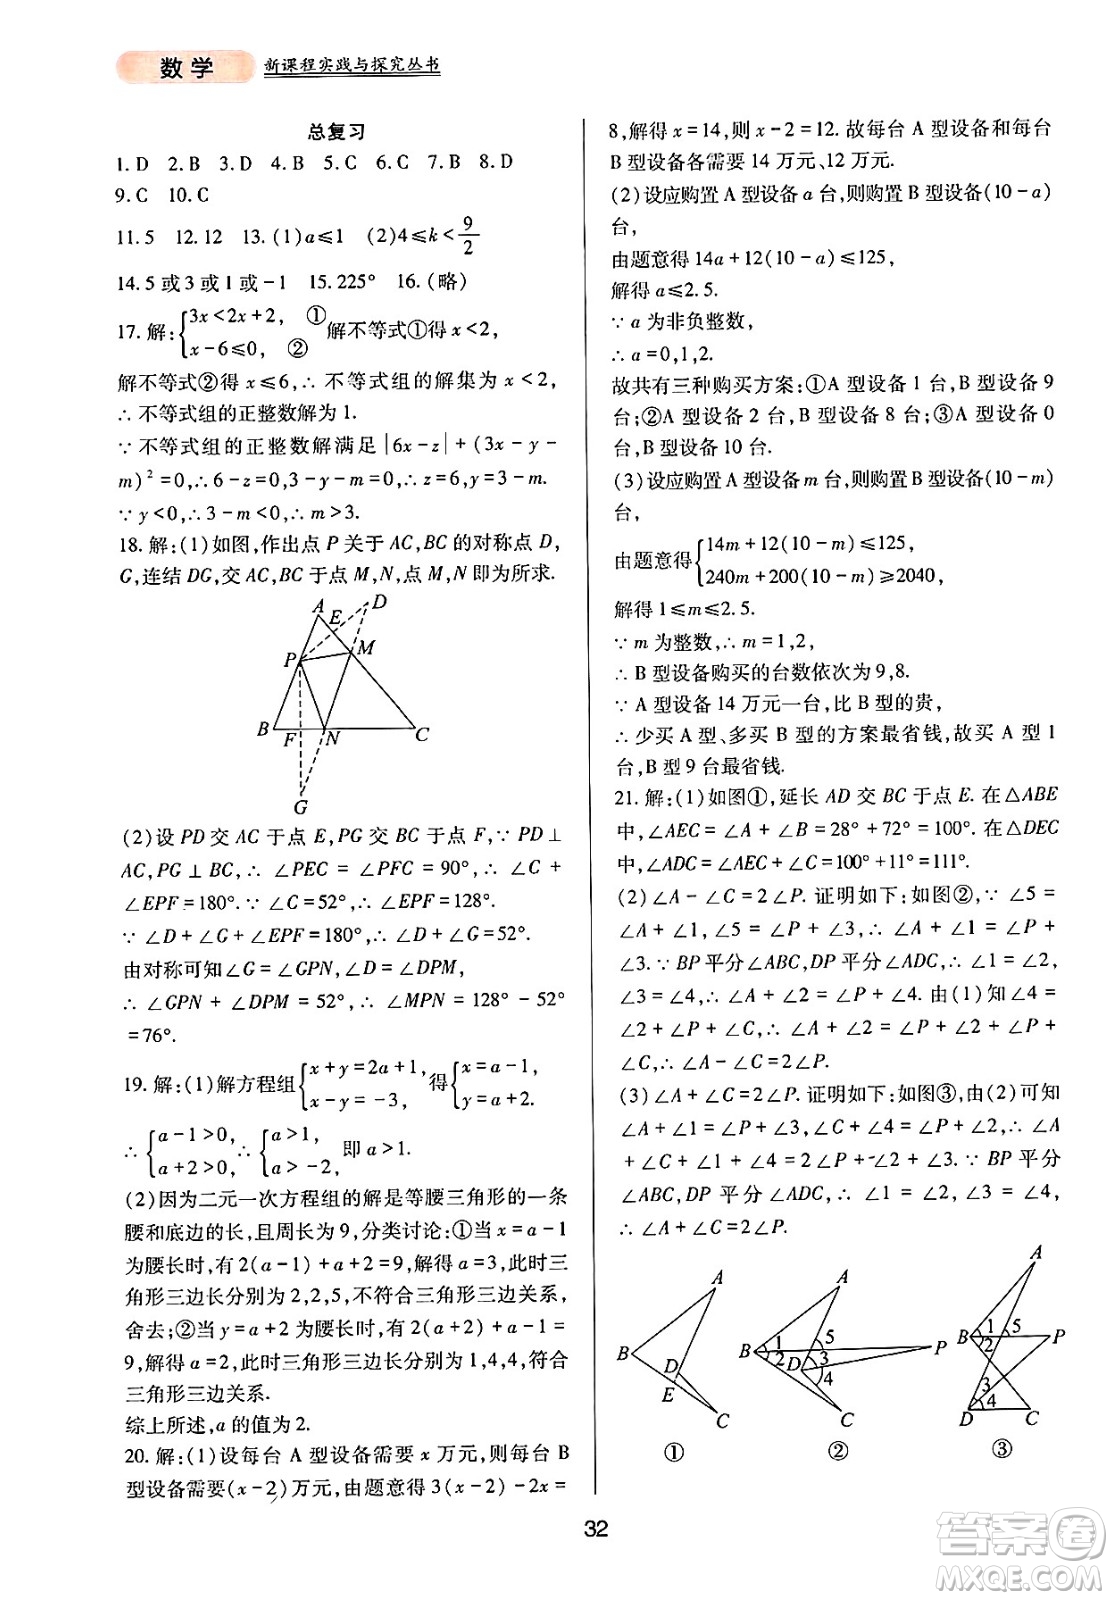 数学 新课程实践与探究丛书
总复习
1. D 2. B 3. D 4. B 5. C 6. C 7. B 8. D
9. C 10. C
11. 5 12. 12 13. (1)a≤1 (2)4≤k<9/2
14. 5 或 3 或 1 或 -1 15. 225° 16. (略)
17. 解:{3x<2x+2, ① x-6≤0, ② 解不等式①得 x<2,
解不等式②得 x≤6,∴ 不等式组的解集为 x<2,
∴ 不等式组的正整数解为 1.
∵ 不等式组的正整数解满足|6x-z|+(3x-y-
m)²=0,∴6-z=0,3-y-m=0,∴z=6,y=3-m.
∵y<0,∴3-m<0,∴m>3.
18. 解:(1)如图,作出点 P 关于 AC,BC 的对称点 D,
G,连结 DG,交 AC,BC 于点 M,N,点 M,N 即为所求.
A
E
D
P
M
B
F
N
C
G
(2)设 PD 交 AC 于点 E,PG 交 BC 于点 F,∵ PD⊥
AC,PG⊥BC,∴ ∠PEC=∠PFC=90°,∴ ∠C+
∠EPF=180°.∵ ∠C=52°,∴ ∠EPF=128°.
∵ ∠D+∠G+∠EPF=180°,∴ ∠D+∠G=52°.
由对称可知∠G=∠GPN,∠D=∠DPM,
∴ ∠GPN+∠DPM=52°,∴ ∠MPN=128°-52°
=76°.
19. 解:(1)解方程组{x+y=2a+1, x-y=-3, 得{x=a-1, y=a+2.
∴ {a-1>0, a+2>0, ∴ {a>1, a>-2, 即 a>1.
(2)因为二元一次方程组的解是等腰三角形的一条
腰和底边的长,且周长为 9,分类讨论:①当 x=a-1
为腰长时,有 2(a-1)+a+2=9,解得 a=3,此时三
角形三边长分别为 2,2,5,不符合三角形三边关系,
舍去;②当 y=a+2 为腰长时,有 2(a+2)+a-1=
9,解得 a=2,此时三角形三边长分别为 1,4,4,符合
三角形三边关系.
综上所述,a 的值为 2.
20. 解:(1)设每台 A 型设备需要 x 万元,则每台 B
型设备需要(x-2)万元,由题意得 3(x-2)-2x=
8,解得 x=14,则 x-2=12. 故每台 A 型设备和每台
B 型设备各需要 14 万元、12 万元.
(2)设应购置 A 型设备 a 台,则购置 B 型设备(10-a)
台,
由题意得 14a+12(10-a)≤125,
解得 a≤2.5.
∵ a 为非负整数,
∴ a=0,1,2.
故共有三种购买方案:①A 型设备 1 台,B 型设备 9
台;②A 型设备 2 台,B 型设备 8 台;③A 型设备 0
台,B 型设备 10 台.
(3)设应购置 A 型设备 m 台,则购置 B 型设备(10-m)
台,
由题意得{14m+12(10-m)≤125, 240m+200(10-m)≥2040,
解得 1≤m≤2.5.
∵ m 为整数,∴ m=1,2,
∴ B 型设备购买的台数依次为 9,8.
∵ A 型设备 14 万元一台,比 B 型的贵,
∴ 少买 A 型、多买 B 型的方案最省钱,故买 A 型 1
台,B 型 9 台最省钱.
21. 解:(1)如图①,延长 AD 交 BC 于点 E. 在△ABE
中,∠AEC=∠A+∠B=28°+72°=100°. 在△DEC
中,∠ADC=∠AEC+∠C=100°+11°=111°.
(2)∠A-∠C=2∠P. 证明如下:如图②,∵ ∠5=
∠A+∠1,∠5=∠P+∠3,∴ ∠A+∠1=∠P+
∠3. ∵ BP 平分∠ABC,DP 平分∠ADC,∴ ∠1=
∠2,∠3=∠4,∴ ∠A+∠2=∠P+∠4. 由(1)知∠4=
∠2+∠P+∠C,∴ ∠A+∠2=∠P+∠2+∠P+
∠C,∴ ∠A-∠C=2∠P.
(3)∠A+∠C=2∠P. 证明如下:如图③,由(2)可知
∠A+∠1=∠P+∠3,∴ ∠C+∠4=∠2+∠P,∴
∠A-∠P=∠3-∠1,∠P-∠C=∠4-∠2. ∵ BP 平分
∠ABC,DP 平分∠ADC,∴ ∠1=∠2,∠3=∠4,
∴ ∠A+∠C=2∠P.
A
B
D
E
C
①
A
B
1
2
5
D
3
4
P
C
②
A
B
1
5
2
P
3
4
D
C
③
32
答案圈
MXQE.COM